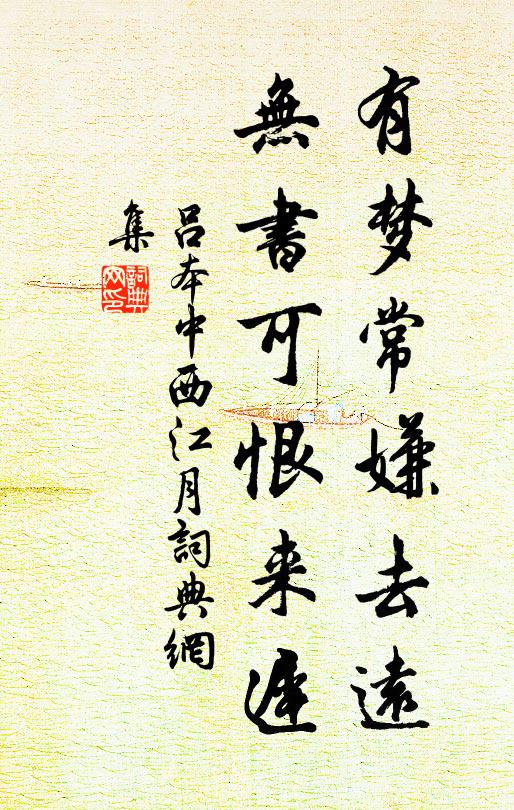 有梦常嫌去遠
無書可恨来遲
吕本中西江月詞典網
集
詞典
网印